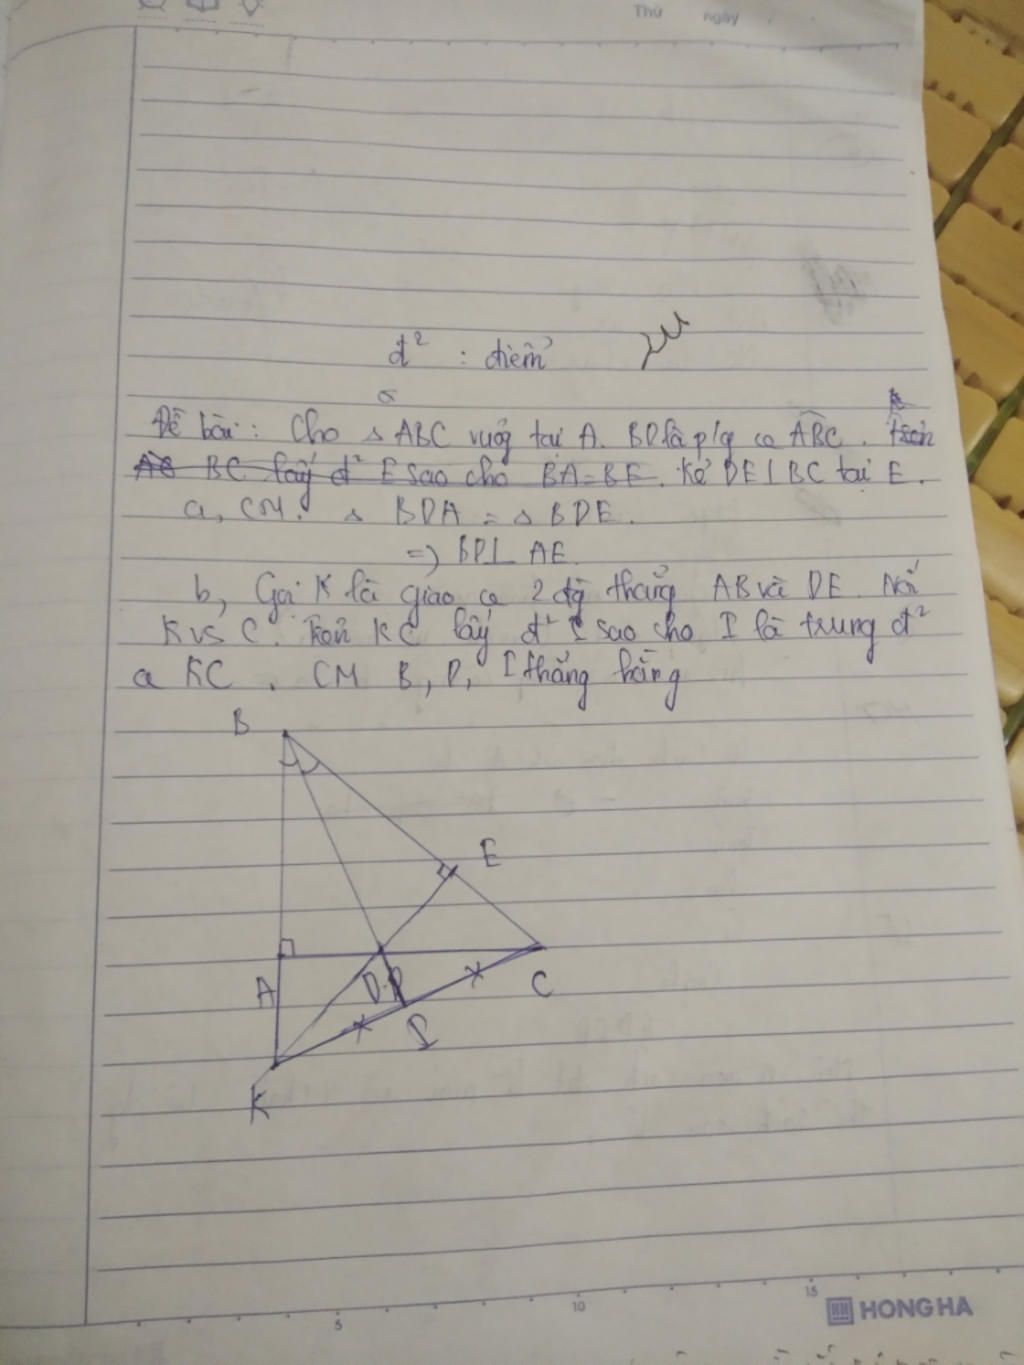 Thứ ngày
đ² : điểm
Đề bài: Cho △ ABC vuôg tại A. BD là p/g củ ABC. trên
AC BC lấy đ² E sao cho BA = BE. Kẻ DE ⊥ BC tại E.
a, CM: △ BDA = △ BDE.
=> BD ⊥ AE
b, Gọi K là giao củ 2 đg thẳng AB và DE. Nối
K vs C. Trên KC lấy đ² I sao cho I là trung đ²
củ KC. CM B, D, I thẳng hàng
B
E
A
D
C
I
K
5
10
15
HONG HA